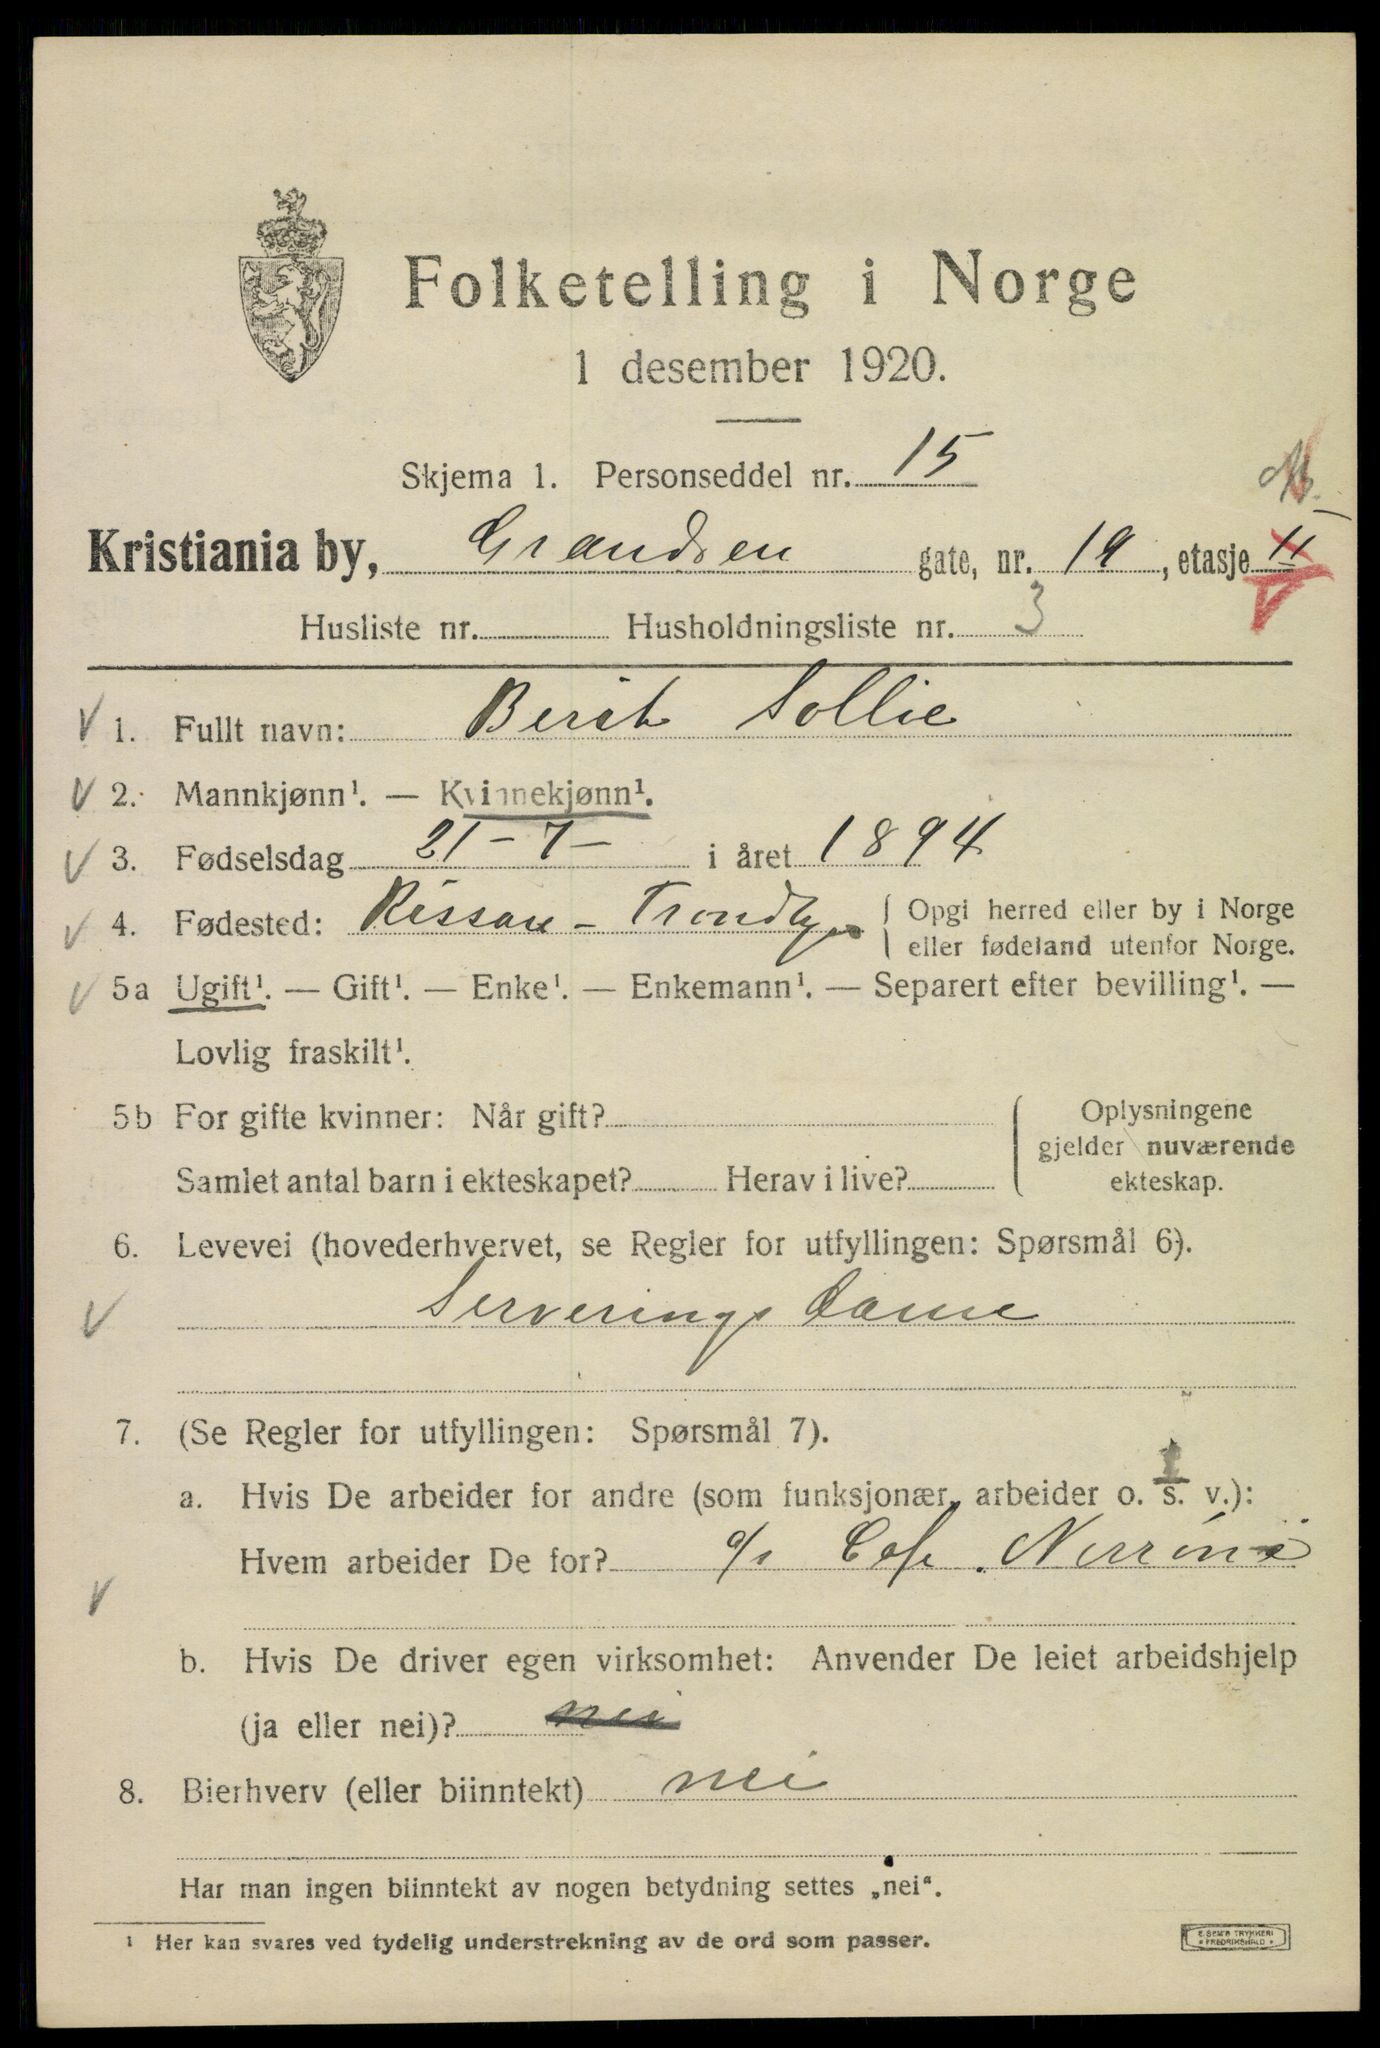 Folketelling i Norge
1 desember 1920.
Skjema 1. Personseddel nr. 15
Kristiania by, Grændsen gate, nr. 19, etasje II
Husliste nr. Husholdningsliste nr. 3
1. Fullt navn: Berit Sollie
2. Mannkjønn¹. — Kvinnekjønn¹.
3. Fødselsdag 21-7- i året 1894
4. Fødested: Rissen - Trondhjem Opgi herred eller by i Norge
eller fødeland utenfor Norge.
5a Ugift¹. — Gift¹. — Enke¹. — Enkemann¹. — Separert efter bevilling¹. —
Lovlig fraskilt¹.
5b For gifte kvinner: Når gift?
Samlet antal barn i ekteskapet? Herav i live?
Oplysningene
gjelder nuværende
ekteskap.
6. Levevei (hovederhvervet, se Regler for utfyllingen: Spørsmål 6).
Serverings Dame
7. (Se Regler for utfyllingen: Spørsmål 7).
a. Hvis De arbeider for andre (som funksjonær, arbeider o. s. v.):
Hvem arbeider De for? a/s Cafe Norrøna
b. Hvis De driver egen virksomhet: Anvender De leiet arbeidshjelp
(ja eller nei)? nei
8. Bierhverv (eller biinntekt) nei
Har man ingen biinntekt av nogen betydning settes „nei“.
¹ Her kan svares ved tydelig understrekning av de ord som passer.
E. SEM'S TRYKKERI
FREDRIKSHALD